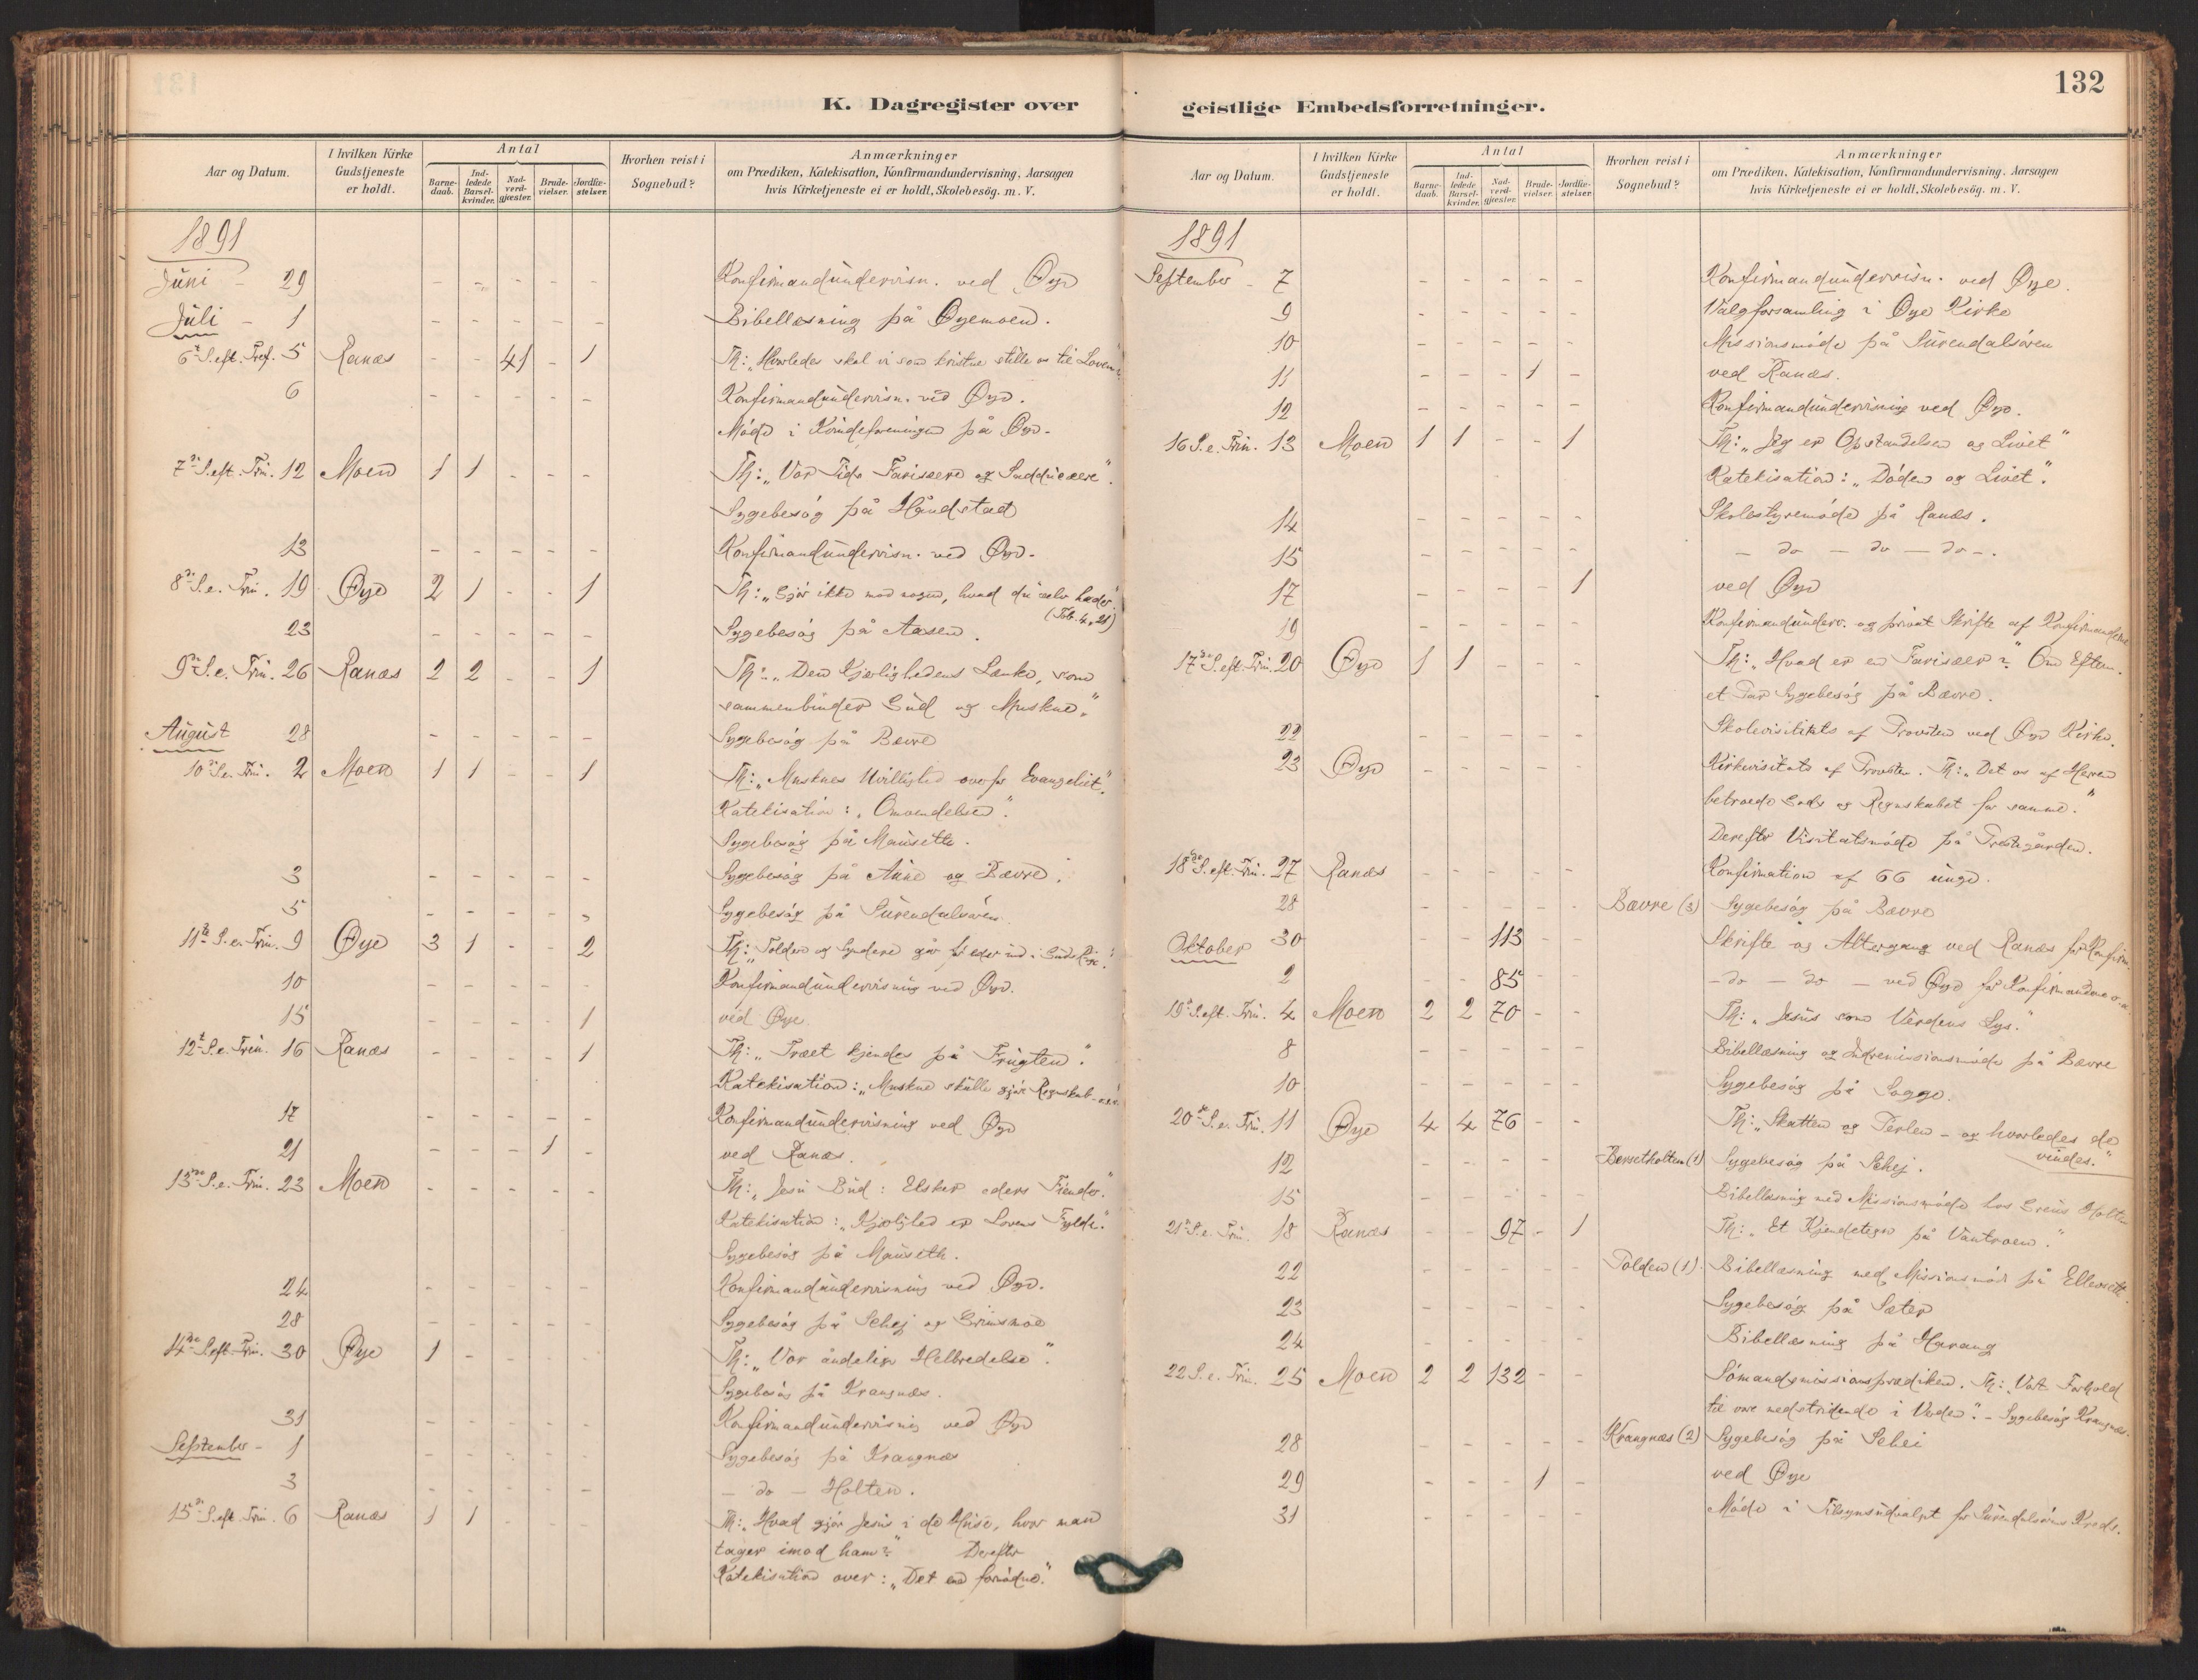 132
K. Dagregister over geistlige Embedsforretninger.
Aar og Datum.
I hvilken Kirke Gudstjeneste er holdt.
Antal
Barnedaab.
Indledede Barselkvinder.
Nadverdgjæster.
Brudevielser.
Jordfæstelser.
Hvorhen reist i Sognebud?
Anmærkninger
om Prædiken, Katekisation, Konfirmandundervisning, Aarsagen
hvis Kirketjeneste ei er holdt, Skolebesög. m. V.
1891
Juni - 29 - - - - - Konfirmandundervisn. ved Øye
Juli - 1 - - - - - Bibellæsning på Øyemoen.
6te S. eft. Tref. 5 Ranæs - - 41 - 1 Th: „Hvorledes skal vi som kristne stille os til Loven"?
6 - - - - - Konfirmandundervisn. ved Øye.
Møde i Kvindeforeningen på Øye.
7de S. eft. Trin. 12 Moen 1 1 - - - Th: „Vor Tids Farisæere og Sadducæere".
Sygebesøg på Håndstad
13 - - - - - Konfirmandundervisn. ved Øye.
8de S. e. Trin. 19 Øye 2 1 - - 1 Th: „Gjør ikke mod nogen, hvad du selv hader".
(Tob. 4, 21)
23 - - - - - Sygebesøg på Aasen.
9de S. e. Trin. 26 Ranæs 2 2 - - 1 Th: „Den Kjærlighedens Lænke, som
sammenbinder Gud og Mnskne".
28 - - - - - Sygebesøg på Bævre
August
10de S. e. Trin. 2 Moen 1 1 - - 1 Th: „Mnsknes Uvillighed overfor Evangeliet".
Katekisation: „Omvendelsen".
Sygebesøg på Mauseth.
3 - - - - - Sygebesøg på Aune og Bævre.
5 - - - - - Sygebesøg på Surendalsøren.
11te S. e. Trin. 9 Øye 3 1 - - 2 Th: „Toldere og Syndere går før eder ind i Guds Rige".
10 - - - - - Konfirmandundervisning ved Øye.
15 - - - - 1 ved Øye
12te S. e. Trin. 16 Ranæs - - - - 1 Th: „Træet kjendes på Frugten".
Katekisation: „Mnskne skulle gjøre Regnskab
17 - - - - - Konfirmandundervisning ved Øye
21 - - - 1 - ved Ranæs.
13de S. e. Trin. 23 Moen - - - - - Th: „Jesu Bud: Elsker eders Fiender".
Katekisation: „Kjærlighed er Lovens Fylde".
Sygebesøg på Mauseth.
24 - - - - - Konfirmandundervisning ved Øye.
28 - - - - - Sygebesøg på Sehej og Grimsmoe
14de S. eft. Trin. 30 Øye 1 - - - - Th: „Vor åndelige Helbredelse".
Sygebesøg på Krangnæs.
31 - - - - - Konfirmandundervisning ved Øye
September - 1 - - - - - Sygebesøg på Krangnæs
3 - - - - - - do - Holten.
15de S. eft. Trin. 6 Ranæs 1 1 - - - Th: „Hvad gjør Jesus i de Huse, hvor man
tager imod ham?" Derefter
Katekisation over: „Det ene fornødne".
Aar og Datum.
I hvilken Kirke Gudstjeneste er holdt.
Antal
Barnedaab.
Indledede Barselkvinder.
Nadverdgjæster.
Brudevielser.
Jordfæstelser.
Hvorhen reist i Sognebud?
Anmærkninger
om Prædiken, Katekisation, Konfirmandundervisning, Aarsagen
hvis Kirketjeneste ei er holdt, Skolebesög. m. V.
1891
September - 7 - - - - - Konfirmandundervisn. ved Øye.
9 - - - - - Valgforsamling i Øye Kirke
10 - - - - - Missionsmøde på Surendalsøren
11 - - - 1 - ved Ranæs.
12 - - - - - Konfirmandundervisning ved Øye.
16 S. e. Trin. 13 Moen 1 1 - - 1 Th: „Jeg er Opstandelsen og Livet"
Katekisation: „Døden og Livet".
14 - - - - - Skolestyremøde på Ranæs.
15 - - - - - - do - do - do -.
17 - - - - 1 ved Øye
19 - - - - - Konfirmandunderv. og privat Skrifte af Konfirmanderne
17de S. eft. Trin. 20 Øye 1 1 - - - Th: „Hvad er en Farisæer?" Om Efterm.
et Par Sygebesøg på Bævre.
22 - - - - - Skolevisitats af Provsten ved Øye Kirke.
23 Øye - - - - - Kirkevisitats af Provsten. Th: „Det os af Herren
betroede Gods og Regnskabet for samme".
Derefter Visitatsmøde på Prestegården.
18de S. eft. Trin. 27 Ranæs - - - - - Konfirmation af 66 unge.
28 - - - - - Bævre (3) Sygebesøg på Bævre
30 - - 113 - - Skrifte og Altergang ved Ranæs for Konfirm.
Oktober
2 - - 85 - - - do - do - ved Øye for Konfirmanderne o. a.
19de S. eft. Trin. 4 Moen 2 2 70 - - Th: „Jesus som Verdens Lys".
8 - - - - - Bibellæsning og Indremissionsmøde på Bævre
10 - - - - - Sygebesøg på Sogge.
20de S. e. Trin. 11 Øye 4 4 76 - - Th: „Skatten og Perlen - og hvorledes de
vindes".
12 - - - - Bersetholten (1) Sygebesøg på Sehej.
15 - - - - - Bibellæsning med Missionsmøde hos Holten
21de S. e. Trin. 18 Ranæs - - 97 - 1 Th: „Et Kjendetegn på Vantroen".
22 - - - - - Polden (1). Bibellæsning med Missionsmøde på
23 - - - - - Sygebesøg på Sæter
24 - - - - - Bibellæsning på Harang
22 S. e. Trin. 25 Moen 2 2 132 - - Sømandsmissionsprædiken. Th: „Vort Forhold
til vore medstridende i Verden". - Sygebesøg Krangnæs.
28 - - - - - Krangnæs (2) Sygebesøg på Sehei
29 - - - 1 - ved Øye
31 Møde i Tilsynsudvalget for Surendalsørens Kreds.